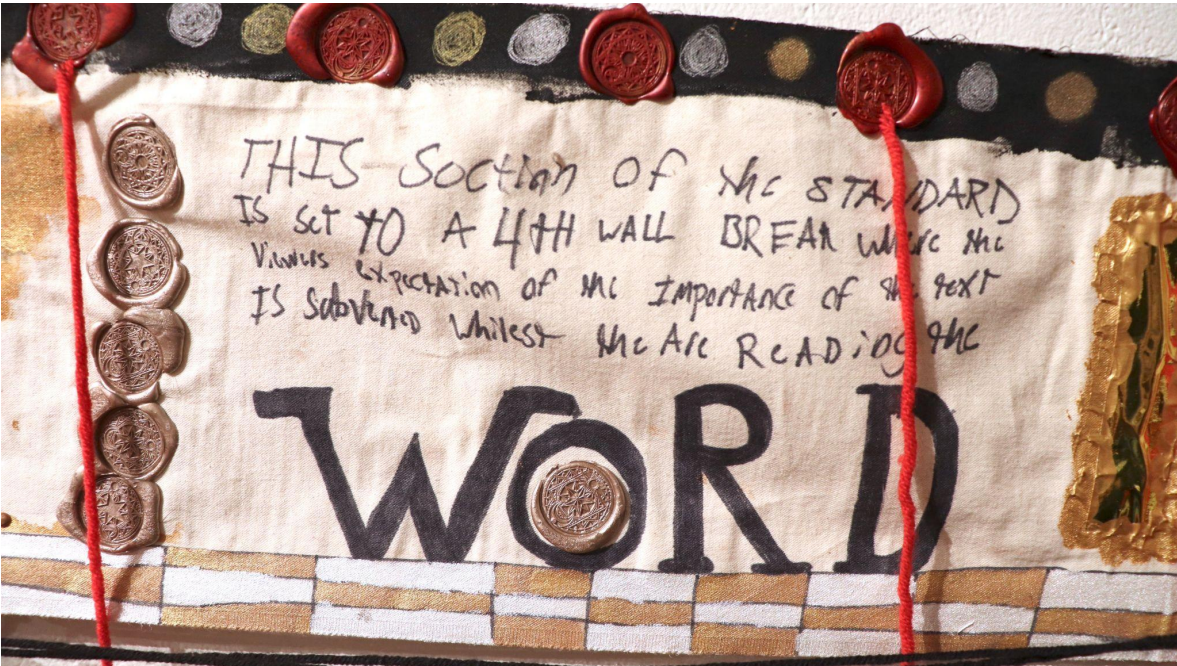 THIS Soction of the STANDARD
IS set to A 4tH WALL BREAK where the
Viewers expectation of the Importance of the text
IS Subverted whilest the Are ReADing the
WORD